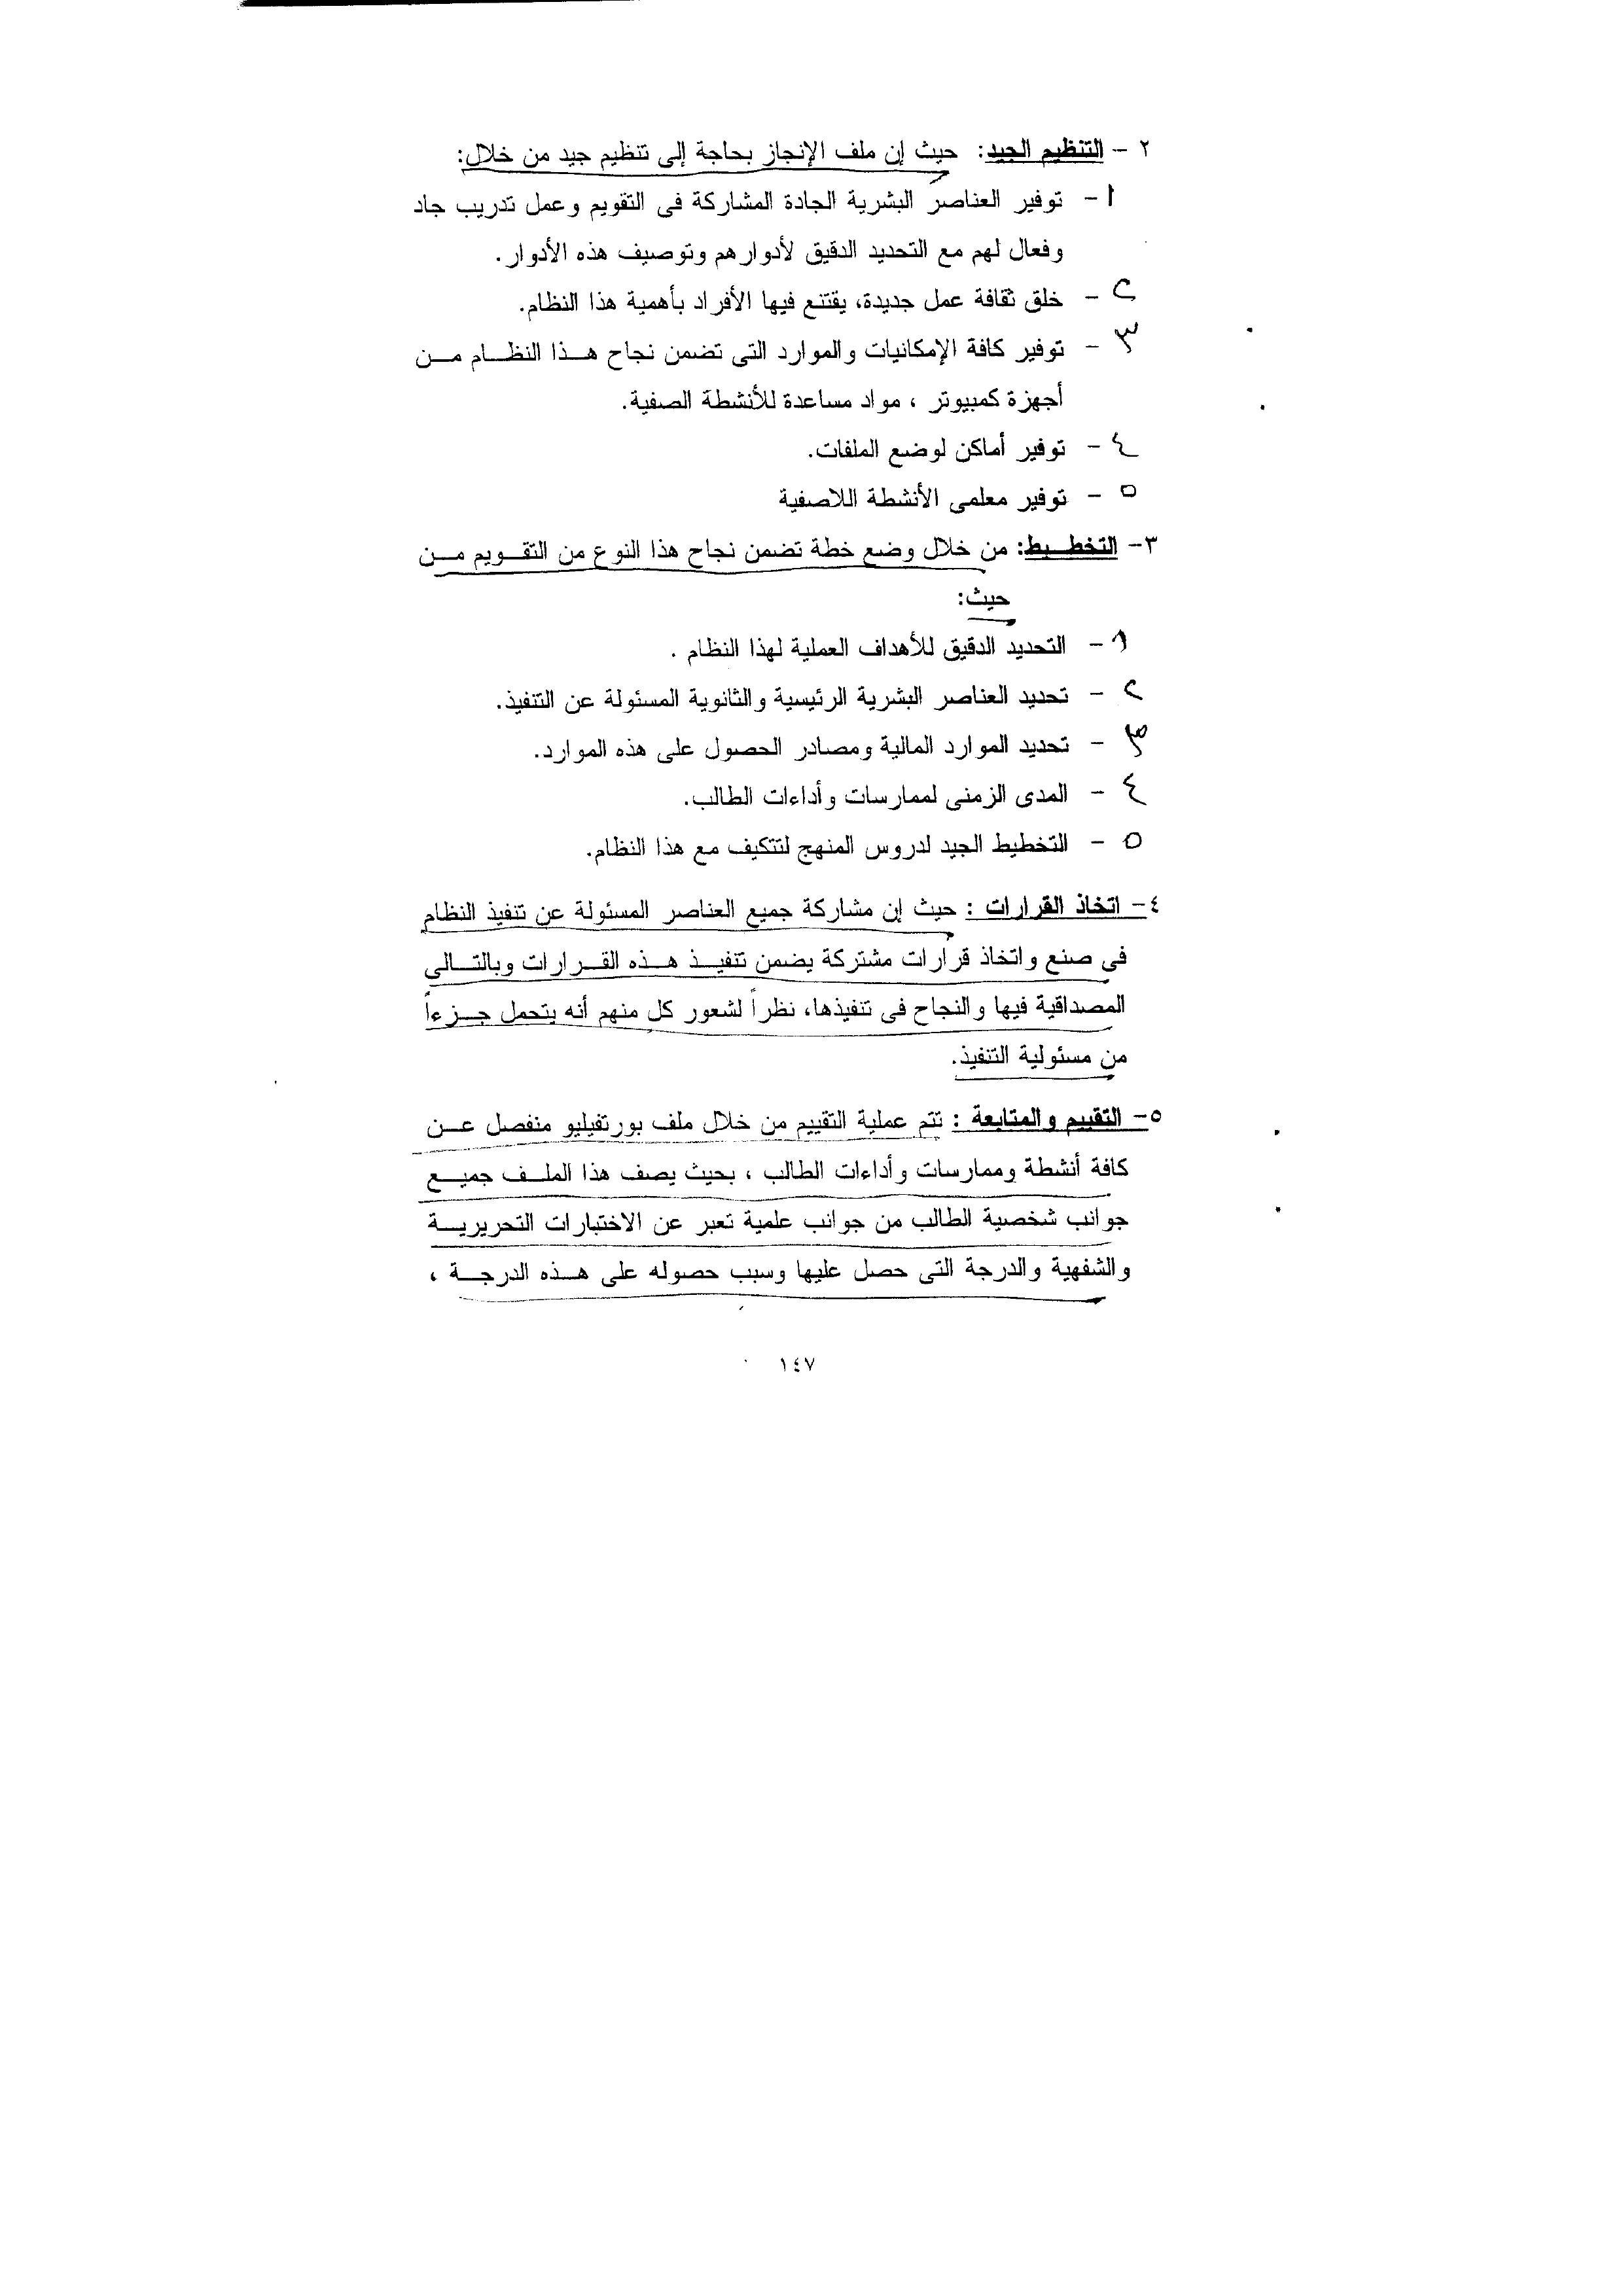 ٢ - التنظيم الجيد: حيث إن ملف الإنجاز بحاجة إلى تنظيم جيد من خلال:
١ - توفير العناصر البشرية الجادة المشاركة فى التقويم وعمل تدريب جاد
وفعال لهم مع التحديد الدقيق لأدوارهم وتوصيف هذه الأدوار.
٢ - خلق ثقافة عمل جديدة، يقتنع فيها الأفراد بأهمية هذا النظام.
٣ - توفير كافة الإمكانيات والموارد التى تضمن نجاح هـذا النظـام مـن
أجهزة كمبيوتر ، مواد مساعدة للأنشطة الصفية.
٤ - توفير أماكن لوضع الملفات.
٥ - توفير معلمى الأنشطة اللاصفية
٣- التخطـيط: من خلال وضع خطة تضمن نجاح هذا النوع من التقـويم مـن
حيث:
١ - التحديد الدقيق للأهداف العملية لهذا النظام .
٢ - تحديد العناصر البشرية الرئيسية والثانوية المسئولة عن التنفيذ.
٣ - تحديد الموارد المالية ومصادر الحصول على هذه الموارد.
٤ - المدى الزمنى لممارسات وأداءات الطالب.
٥ - التخطيط الجيد لدروس المنهج لتتكيف مع هذا النظام.
٤- اتخاذ القرارات : حيث إن مشاركة جميع العناصر المسئولة عن تنفيذ النظام
فى صنع واتخاذ قرارات مشتركة يضمن تنفيـذ هـذه القـرارات وبالتـالى
المصداقية فيها والنجاح فى تنفيذها، نظراً لشعور كل منهم أنه يتحمل جـزءاً
من مسئولية التنفيذ.
٥- التقييم والمتابعة : تتم عملية التقييم من خلال ملف بورتفيليو منفصل عـن
كافة أنشطة وممارسات وأداءات الطالب ، بحيث يصف هذا الملـف جميـع
جوانب شخصية الطالب من جوانب علمية تعبر عن الاختبارات التحريريـة
والشفهية والدرجة التى حصل عليها وسبب حصوله على هـذه الدرجـة ،
١٤٧